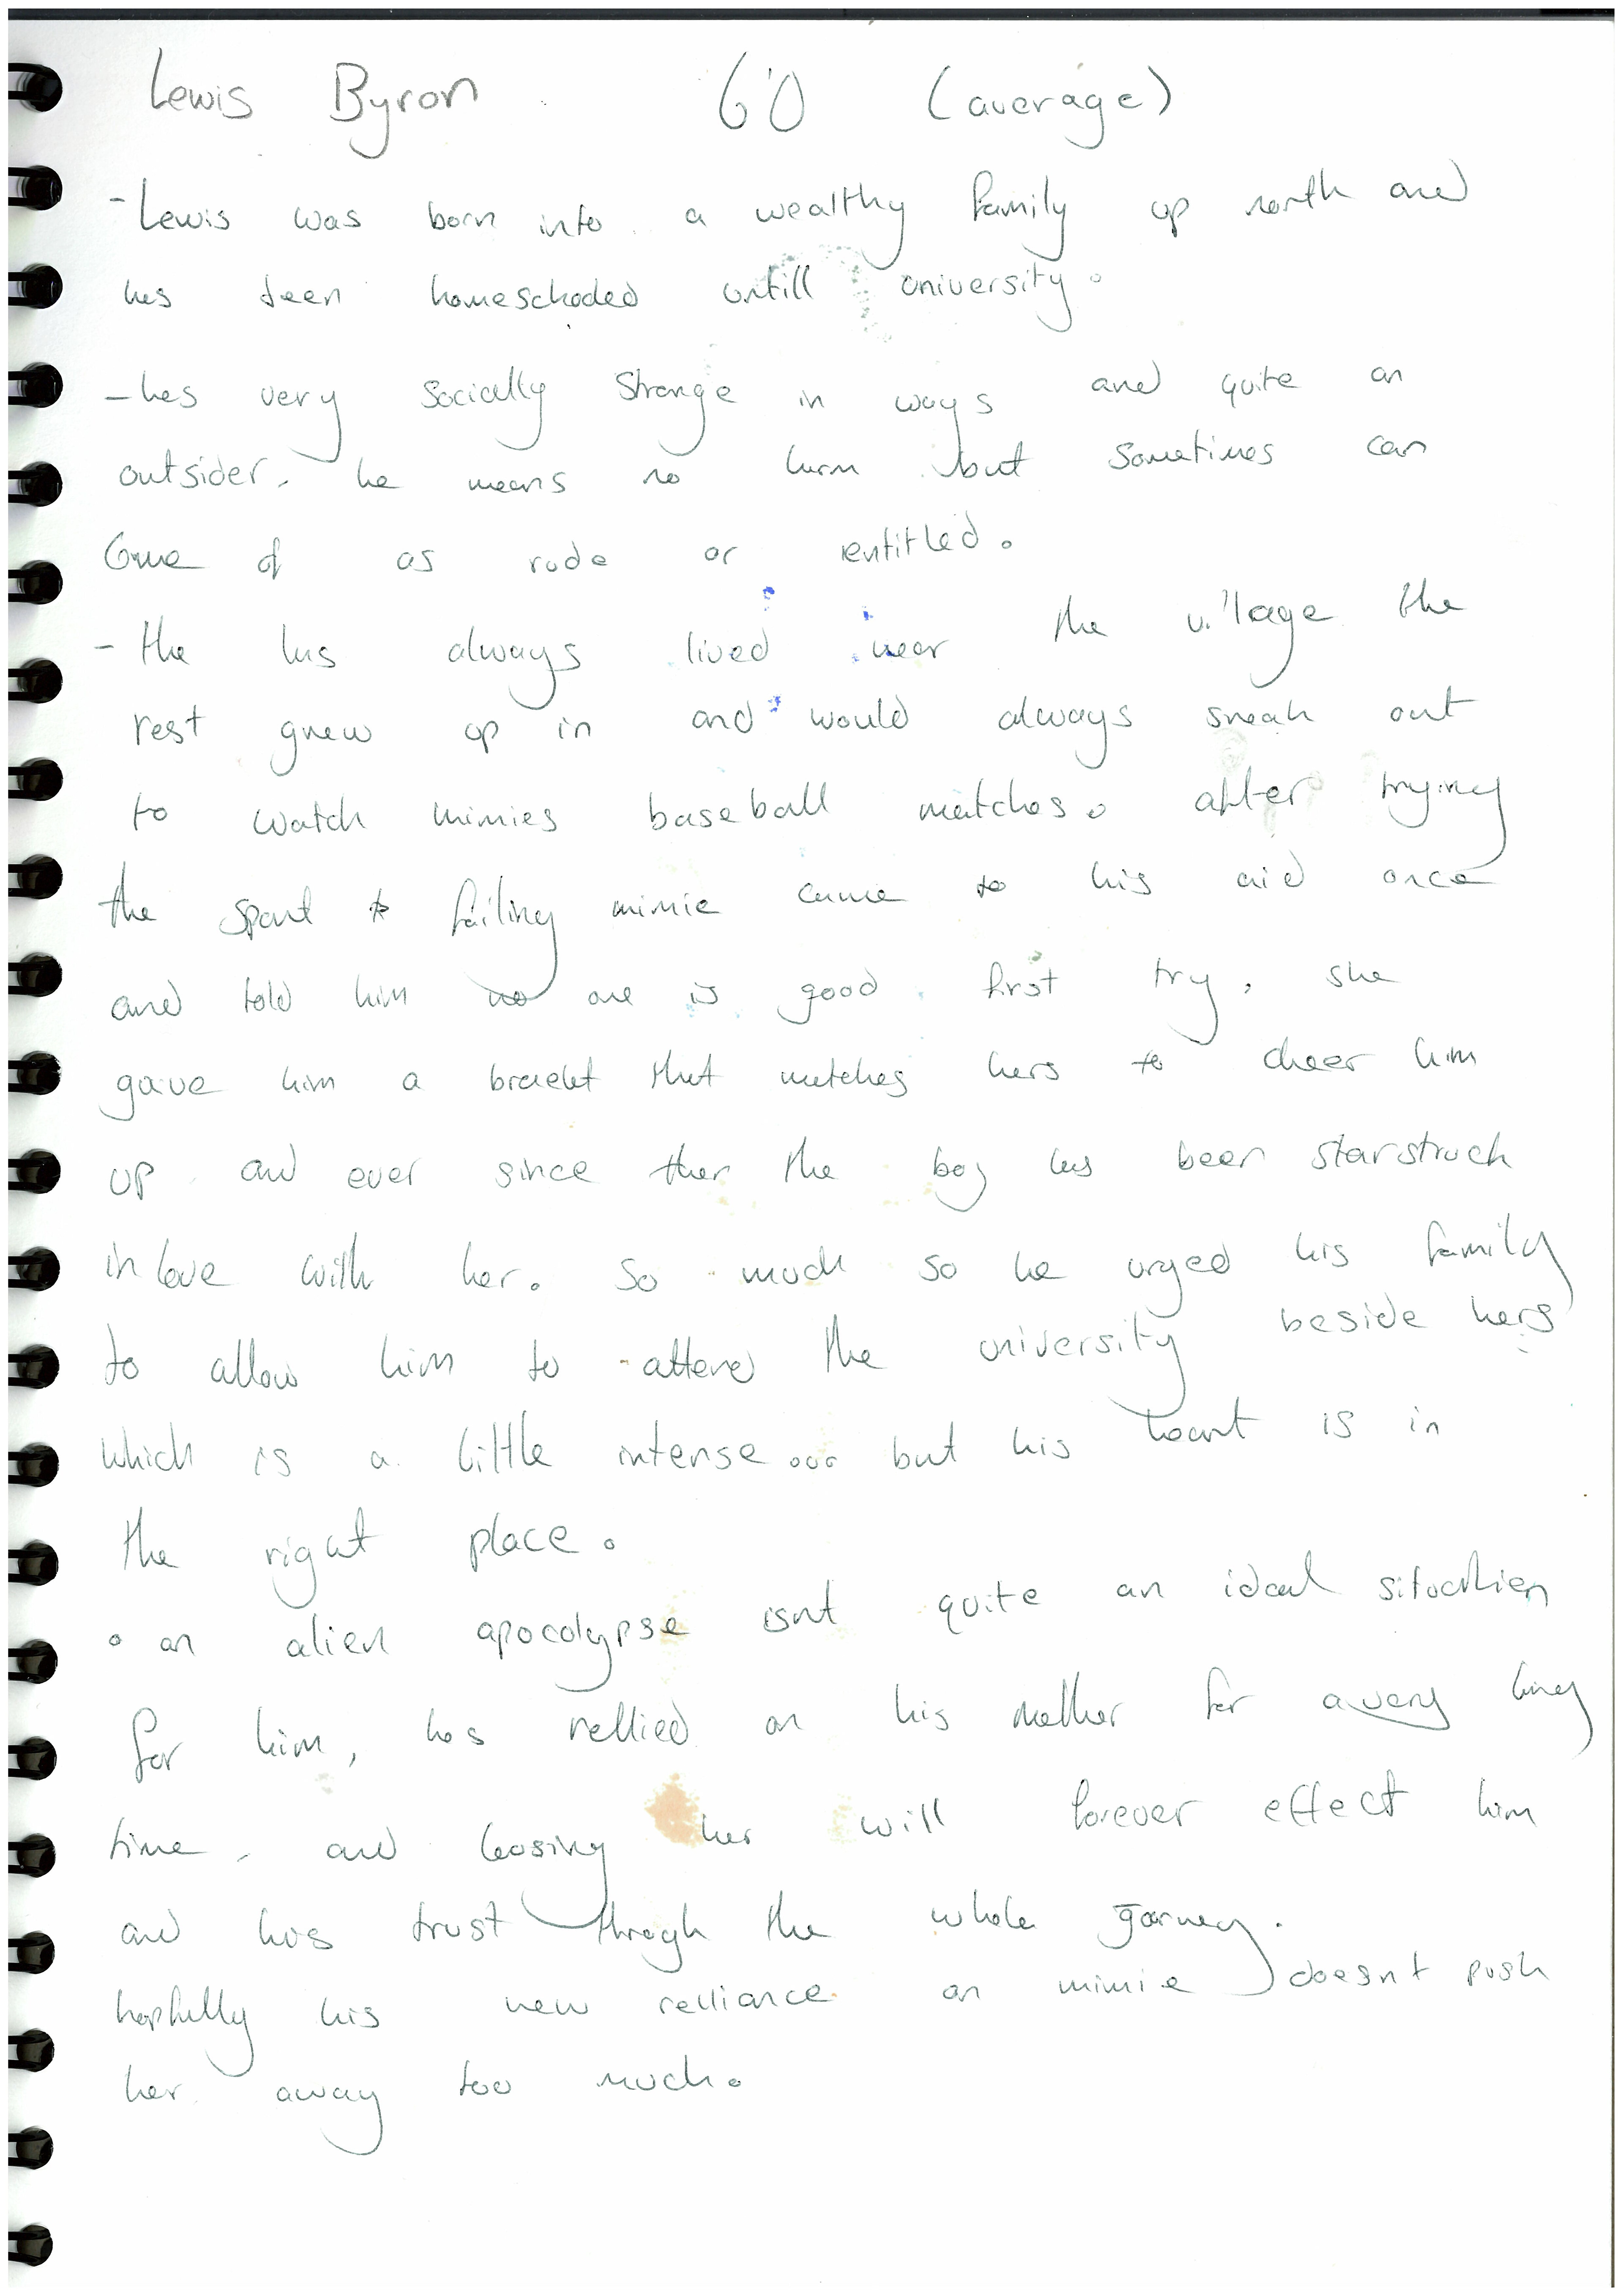 Lewis Byron 6'0 (average)
- Lewis was born into a wealthy family up north and
has been homeschooled untill university.
- hes very socially strange in ways and quite an
outsider. he means no harm but sometimes can
come of as rude or entitled.
- He has always lived near the village the
rest grew up in and would always sneak out
to watch mimies baseball matches. after trying
the sport & failing mimie came to his aid once
and told him no one is good first try, she
gave him a bracelet that matches hers to cheer him
up and ever since then the boy has been starstruck
in love with her. so much so he urged his family
to allow him to attend the university beside hers
which is a little intense... but his heart is in
the right place.
• an alien apocolypse isnt quite an ideal situation
for him, hes rellied on his mother for a very long
time, and loosing her will forever effect him
and his trust throgh the whole journey.
hopfully his new relliance on mimie doesnt push
her away too much.